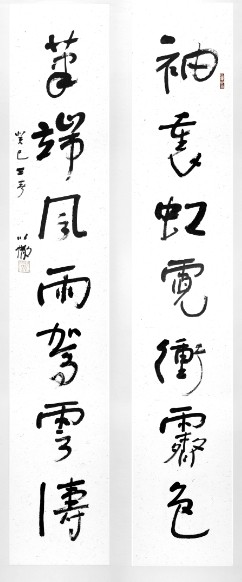 袖裏虹霓衝霽色
筆端風雨駕雲濤
癸巳